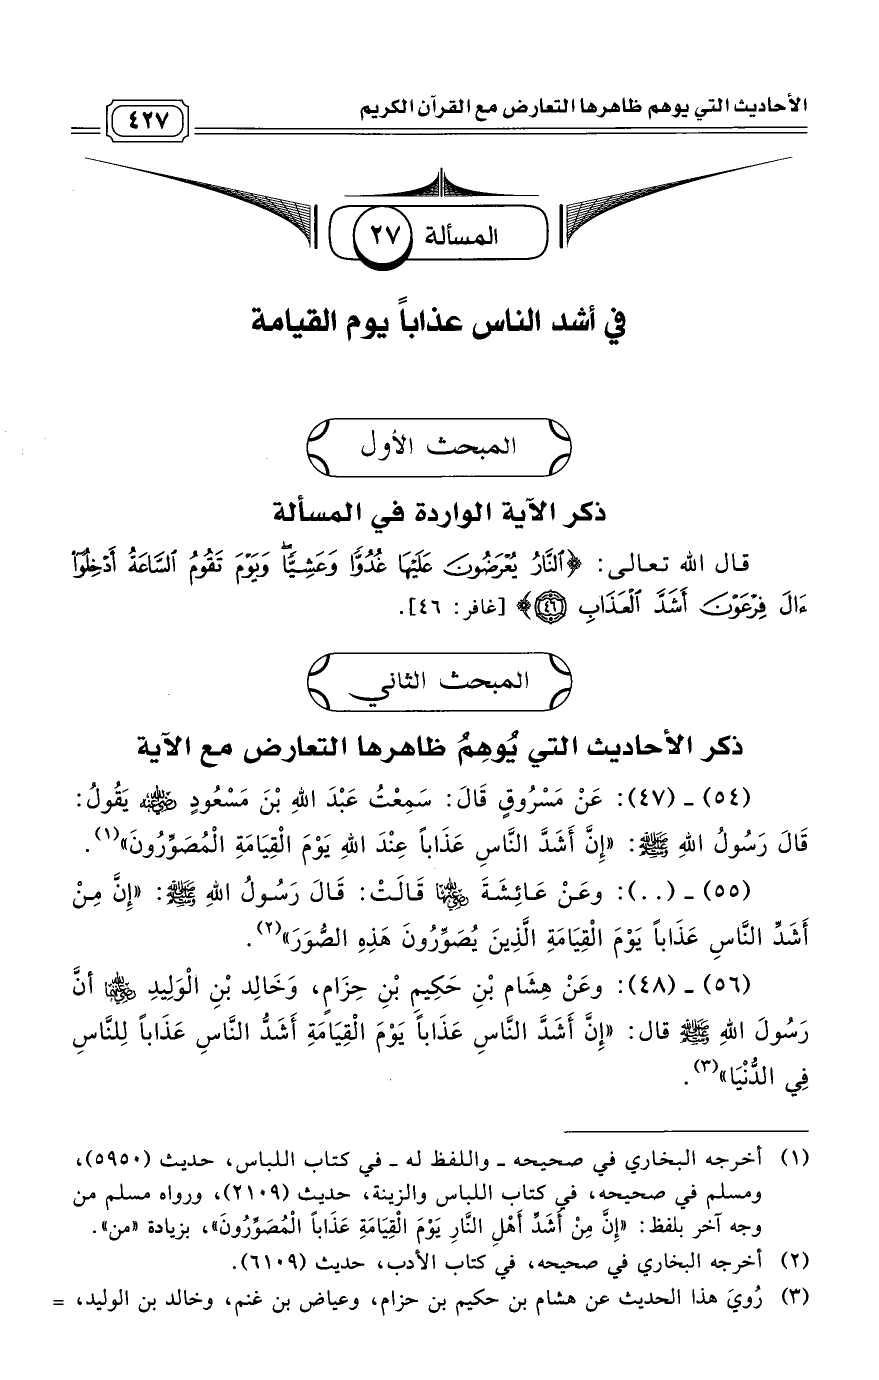 الأحاديث التي يوهم ظاهرها التعارض مع القرآن الكريم
٤٢٧
المسألة ٢٧
في أشد الناس عذاباً يوم القيامة
المبحث الأول
ذكر الآية الواردة في المسألة
قال الله تعالى: ﴿ٱلنَّارُ يُعْرَضُونَ عَلَيْهَا غُدُوًّا وَعَشِيًّاۖ وَيَوْمَ تَقُومُ ٱلسَّاعَةُ أَدْخِلُوٓا۟
ءَالَ فِرْعَوْنَ أَشَدَّ ٱلْعَذَابِ ٤٦﴾ [غافر: ٤٦].
المبحث الثاني
ذكر الأحاديث التي يُوهِمُ ظاهرها التعارض مع الآية
(٥٤) ـ (٤٧): عَنْ مَسْرُوقٍ قَالَ: سَمِعْتُ عَبْدَ اللهِ بْنَ مَسْعُودٍ رضي الله عنه يَقُولُ:
قَالَ رَسُولُ اللهِ ﷺ: «إِنَّ أَشَدَّ النَّاسِ عَذَاباً عِنْدَ اللهِ يَوْمَ الْقِيَامَةِ الْمُصَوِّرُونَ»(١).
(٥٥) ـ (..): وعَنْ عَائِشَةَ رضي الله عنها قَالَتْ: قَالَ رَسُولُ اللهِ ﷺ: «إِنَّ مِنْ
أَشَدِّ النَّاسِ عَذَاباً يَوْمَ الْقِيَامَةِ الَّذِينَ يُصَوِّرُونَ هَذِهِ الصُّوَرَ»(٢).
(٥٦) ـ (٤٨): وعَنْ هِشَام بْنِ حَكِيمِ بْنِ حِزَامٍ، وَخَالِد بْنِ الْوَلِيدِ رضي الله عنهما أنَّ
رَسُولَ اللهِ ﷺ قال: «إِنَّ أَشَدَّ النَّاسِ عَذَاباً يَوْمَ الْقِيَامَةِ أَشَدُّ النَّاسِ عَذَاباً لِلنَّاسِ
فِي الدُّنْيَا»(٣).
(١) أخرجه البخاري في صحيحه ـ واللفظ له ـ في كتاب اللباس، حديث (٥٩٥٠)،
ومسلم في صحيحه، في كتاب اللباس والزينة، حديث (٢١٠٩)، ورواه مسلم من
وجه آخر بلفظ: «إِنَّ مِنْ أَشَدِّ أَهْلِ النَّارِ يَوْمَ الْقِيَامَةِ عَذَاباً الْمُصَوِّرُونَ»، بزيادة «من».
(٢) أخرجه البخاري في صحيحه، في كتاب الأدب، حديث (٦١٠٩).
(٣) رُويَ هذا الحديث عن هشام بن حكيم بن حزام، وعياض بن غنم، وخالد بن الوليد، =